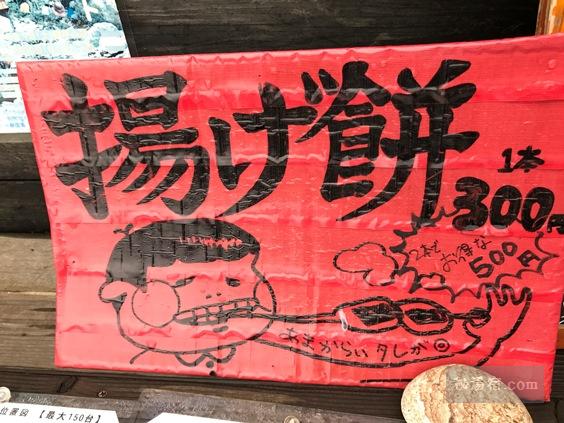 揚げ餅
1本
300円
2本でお得な
500円
あまからい タレが◎
位置図 【最大150台】